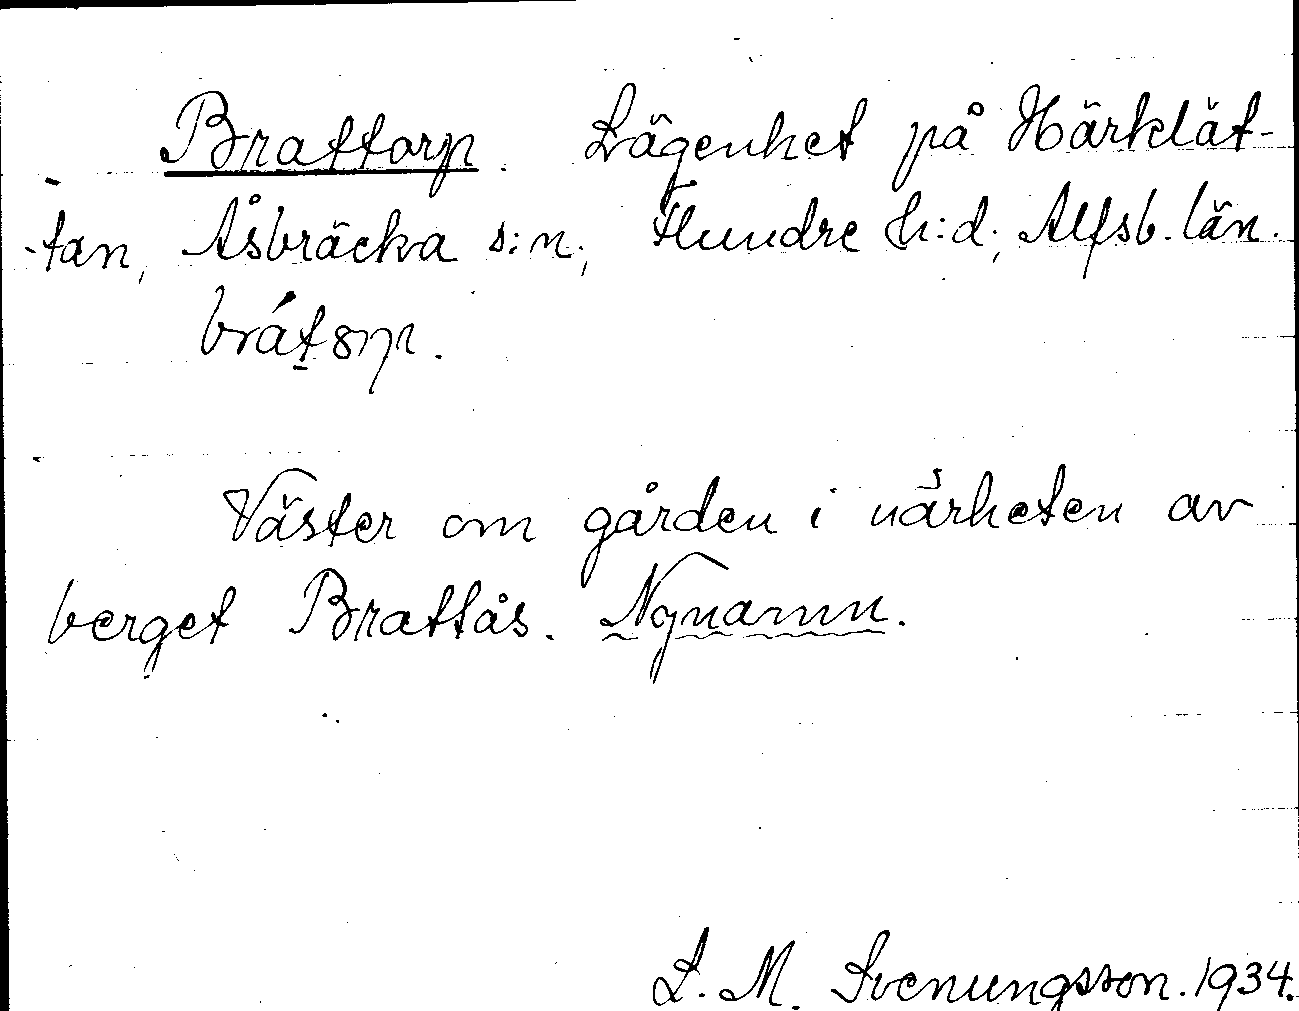 Brattorp. Lägenhet på Härklät-
tan, Åsbräcka s:n, Flundre h:d, Alfsb. län.
brátorp.
Väster om gården i närheten av
berget Brattås. Nynamn.
L. M. Svenungsson. 1934.